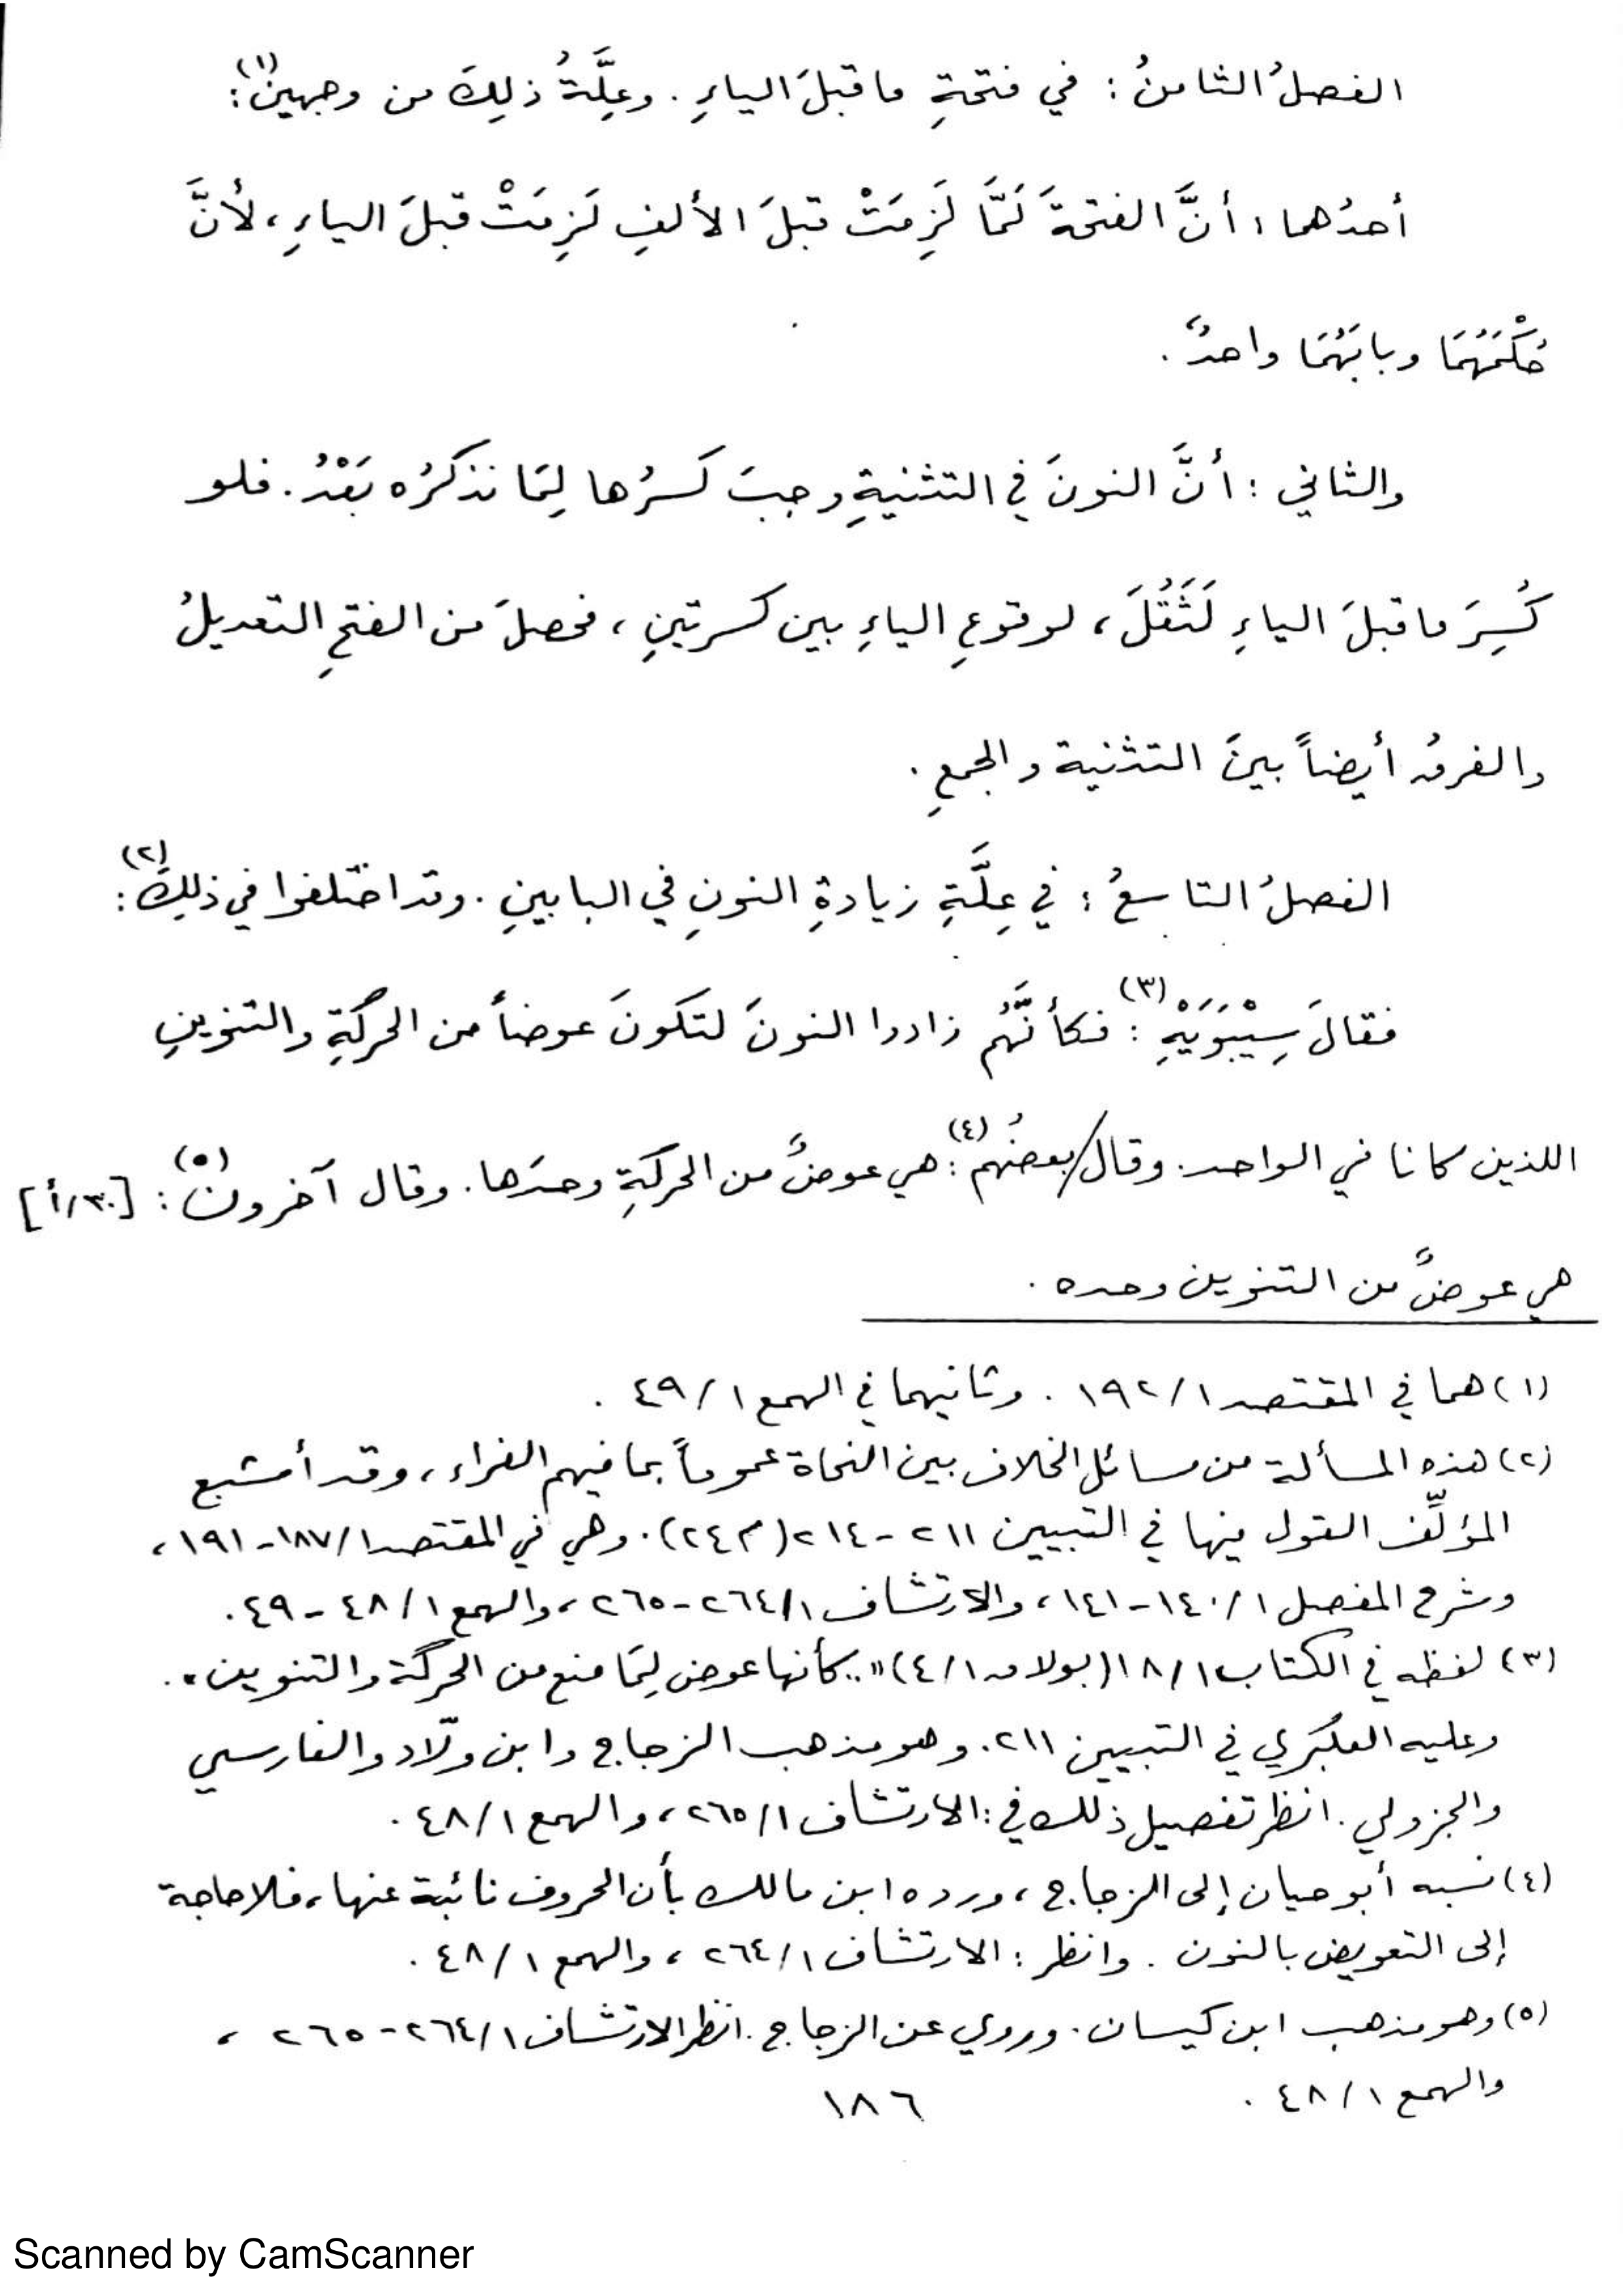 الفصلُ الثامنُ : في فتحةِ ما قبلَ الياءِ . وعِلَّةُ ذلِكَ من وجهينِ(١) :
أحدُهما : أنَّ الفتحةَ لَمَّا لَزِمَتْ قبلَ الألفِ لَزِمَتْ قبلَ الياءِ ، لأنَّ
حُكْمَهُمَا وبابَهُمَا واحدٌ .
والثاني : أنَّ النونَ في التثنيةِ وجبَ كَسرُها لِمَا نذكرُه بَعْدُ . فلو
كُسِرَ ما قبلَ الياءِ لَثَقُلَ ، لوقوعِ الياءِ بين كسرتينِ ، فحصلَ من الفتحِ التعديلُ
والفرقُ أيضاً بينَ التثنية والجمعِ .
الفصلُ التاسعُ : في عِلَّةِ زيادةِ النونِ في البابينِ . وقد اختلفوا في ذلِكَ(٢) :
فقالَ سِيْبَوَيْهِ(٣) : فكأنَّهُم زادوا النونَ لتكونَ عوضاً من الحركةِ والتنوينِ
اللذين كانا في الواحد . وقال / بعضُهم(٤) : هي عوضٌ من الحركةِ وحدَها . وقال آخرون(٥) : [٣٠/أ]
هي عوضٌ من التنوين وحده .
(١) هما في المقتصد ١ / ١٩٢ . وثانيهما في الهمع ١ / ٤٩ .
(٢) هذه المسألة من مسائل الخلاف بين النحاة عموماً بما فيهم الفراء ، وقد أشبع
المؤلِّف القول فيها في التبيين ٢١١ - ٢١٤ (م ٢٤) . وهي في المقتصد ١ / ١٨٧ - ١٩١ ،
وشرح المفصل ١ / ١٤٠ - ١٤١ ، والارتشاف ١ / ٢٦٤ - ٢٦٥ ، والهمع ١ / ٤٨ - ٤٩ .
(٣) لفظه في الكتاب ١ / ١٨ (بولاق ١ / ٤) " .. كأنها عوض لِمَا منع من الحركة والتنوين " .
وعليه العكبري في التبيين ٢١١ . وهو مذهب الزجاج وابن ولّاد والفارسي
والجزولي . انظر تفصيل ذلك في : الارتشاف ١ / ٢٦٥ ، والهمع ١ / ٤٨ .
(٤) نسبه أبو حيان إلى الزجاج ، ورده ابن مالك بأن الحروف نائبة عنها ، فلا حاجة
إلى التعويض بالنون . وانظر : الارتشاف ١ / ٢٦٤ ، والهمع ١ / ٤٨ .
(٥) وهو مذهب ابن كيسان . وروي عن الزجاج . انظر الارتشاف ١ / ٢٦٤ - ٢٦٥ ،
والهمع ١ / ٤٨ .
١٨٦
Scanned by CamScanner